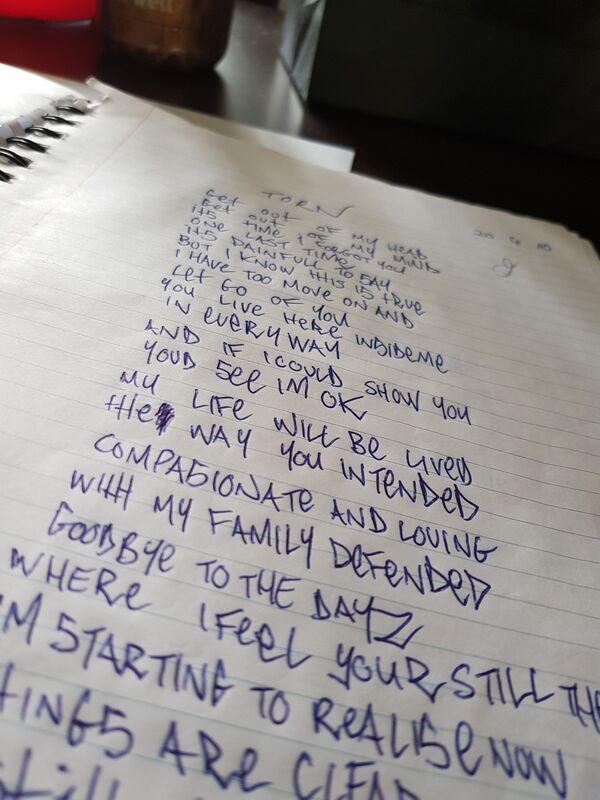 well
TORN
20 4 10
Get out OF MY HEAD
Get out OF MY MIND
ItS TIME I FORGOT YOU
ONE LAST TIME
ItS PAINFULL TO SAY
BUT I KNOW tHIS IS tRUe
I HAVE TOO MOVE ON AND
Let GO OF YOU
YOU LIVE HeRe INSIDEME
IN eVeRY WAY
AND IF I COULD SHOW YOU
YOUD See IM OK
MY LIFE WILL Be LIVED
tHe WAY YOU INTENDED
COMPASIONATE AND LOVING
WItH MY FAMILY DeFeNDeD
GOODBYe TO tHe DAYZ
WHeRe I FeeL YOUR STILL THe
M STARTING TO ReALISe NOW
HINGS ARe CLEAR
Still